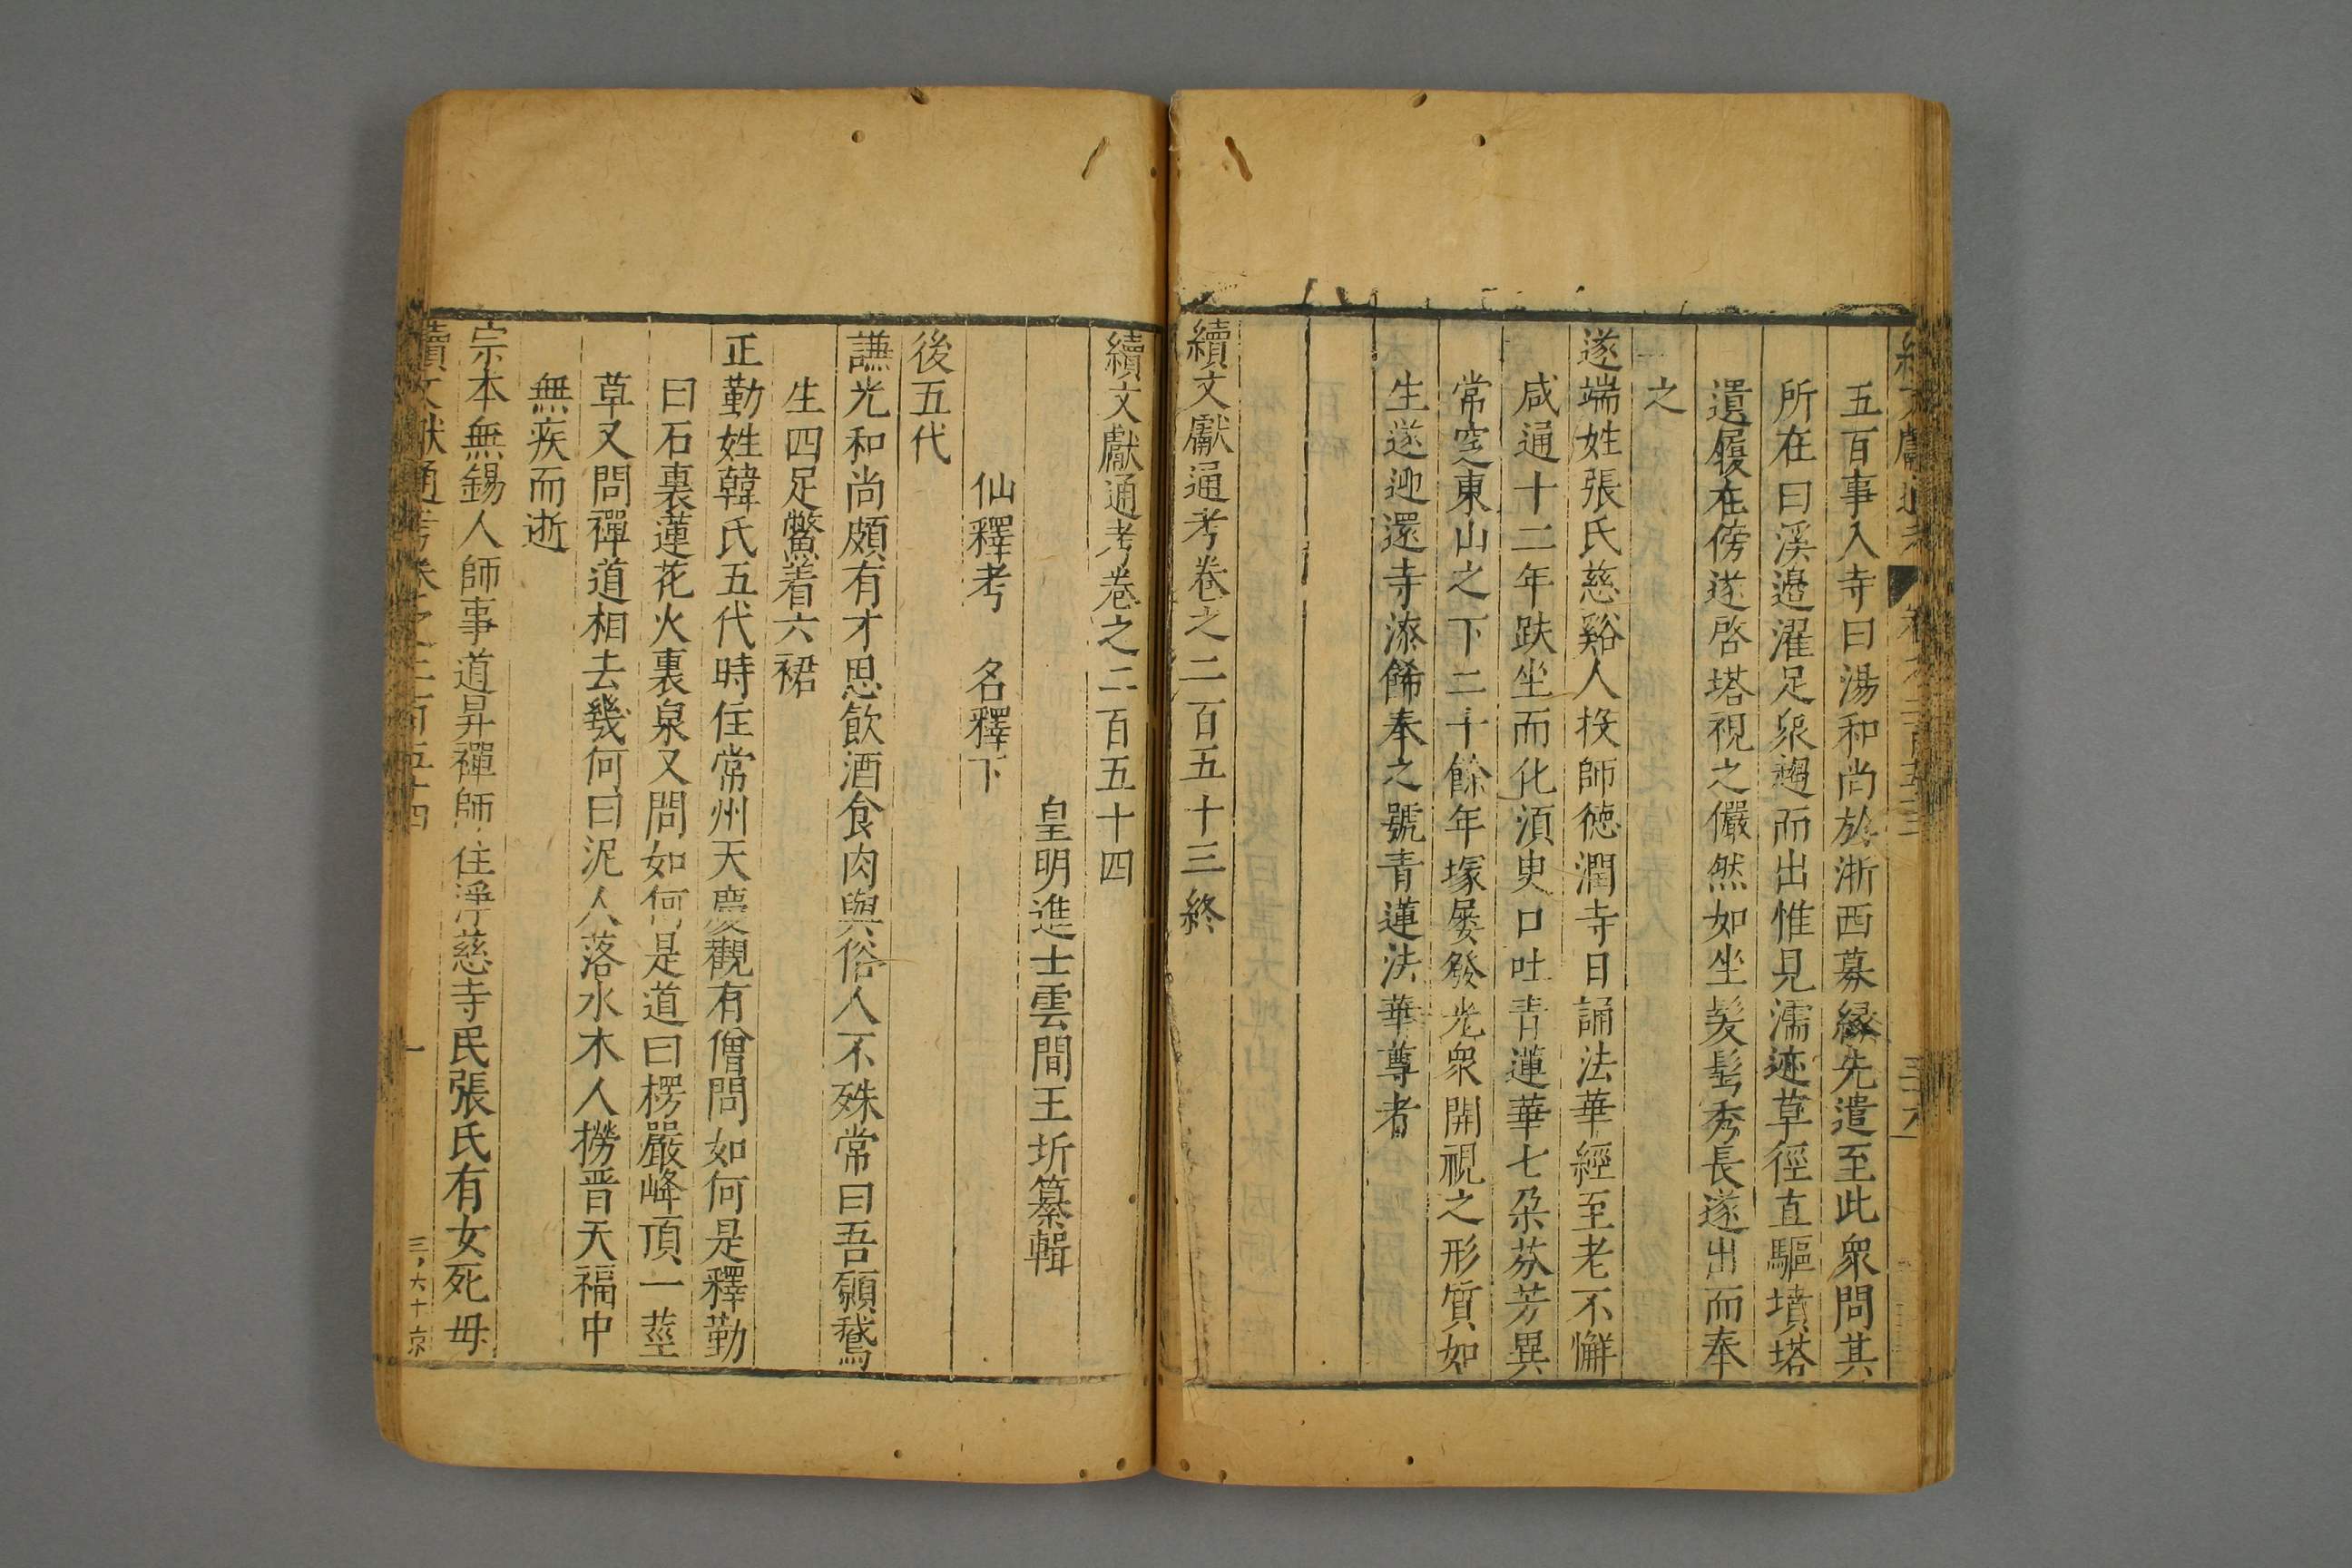 五百事入寺曰湯和尚於浙西募緣先遣至此衆問其
所在曰溪邉濯足衆趨而出惟見濡迹草徑直驅墳塔
還履在傍遂啓塔視之儼然如坐髮髩秀長遂出而奉
之
遂端姓張氏慈谿人投師德潤寺日誦法華經至老不懈
咸通十二年趺坐而化湏臾口吐青蓮華七朶芬芳異
常窆東山之下二十餘年塚屡發光衆開視之形質如
生遂迎還寺漆餙奉之號青蓮法華尊者
續文獻通考卷之二百五十三終
續文獻通考卷之二百五十四
皇明進士雲間王圻纂輯
仙釋考 名釋下
後五代
謙光和尚頗有才思飲酒食肉與俗人不殊常曰吾願鵞
生四足鱉着六裙
正勤姓韓氏五代時住常州天慶觀有僧問如何是釋勤
曰石裏蓮花火裏泉又問如何是道曰楞嚴峰頂一莖
草又問禪道相去幾何曰泥人落水木人撈晋天福中
無疾而逝
宗本無錫人師事道昇禪師住淨慈寺民張氏有女死毋
續文獻通考卷之二百五十四
一
三六十京